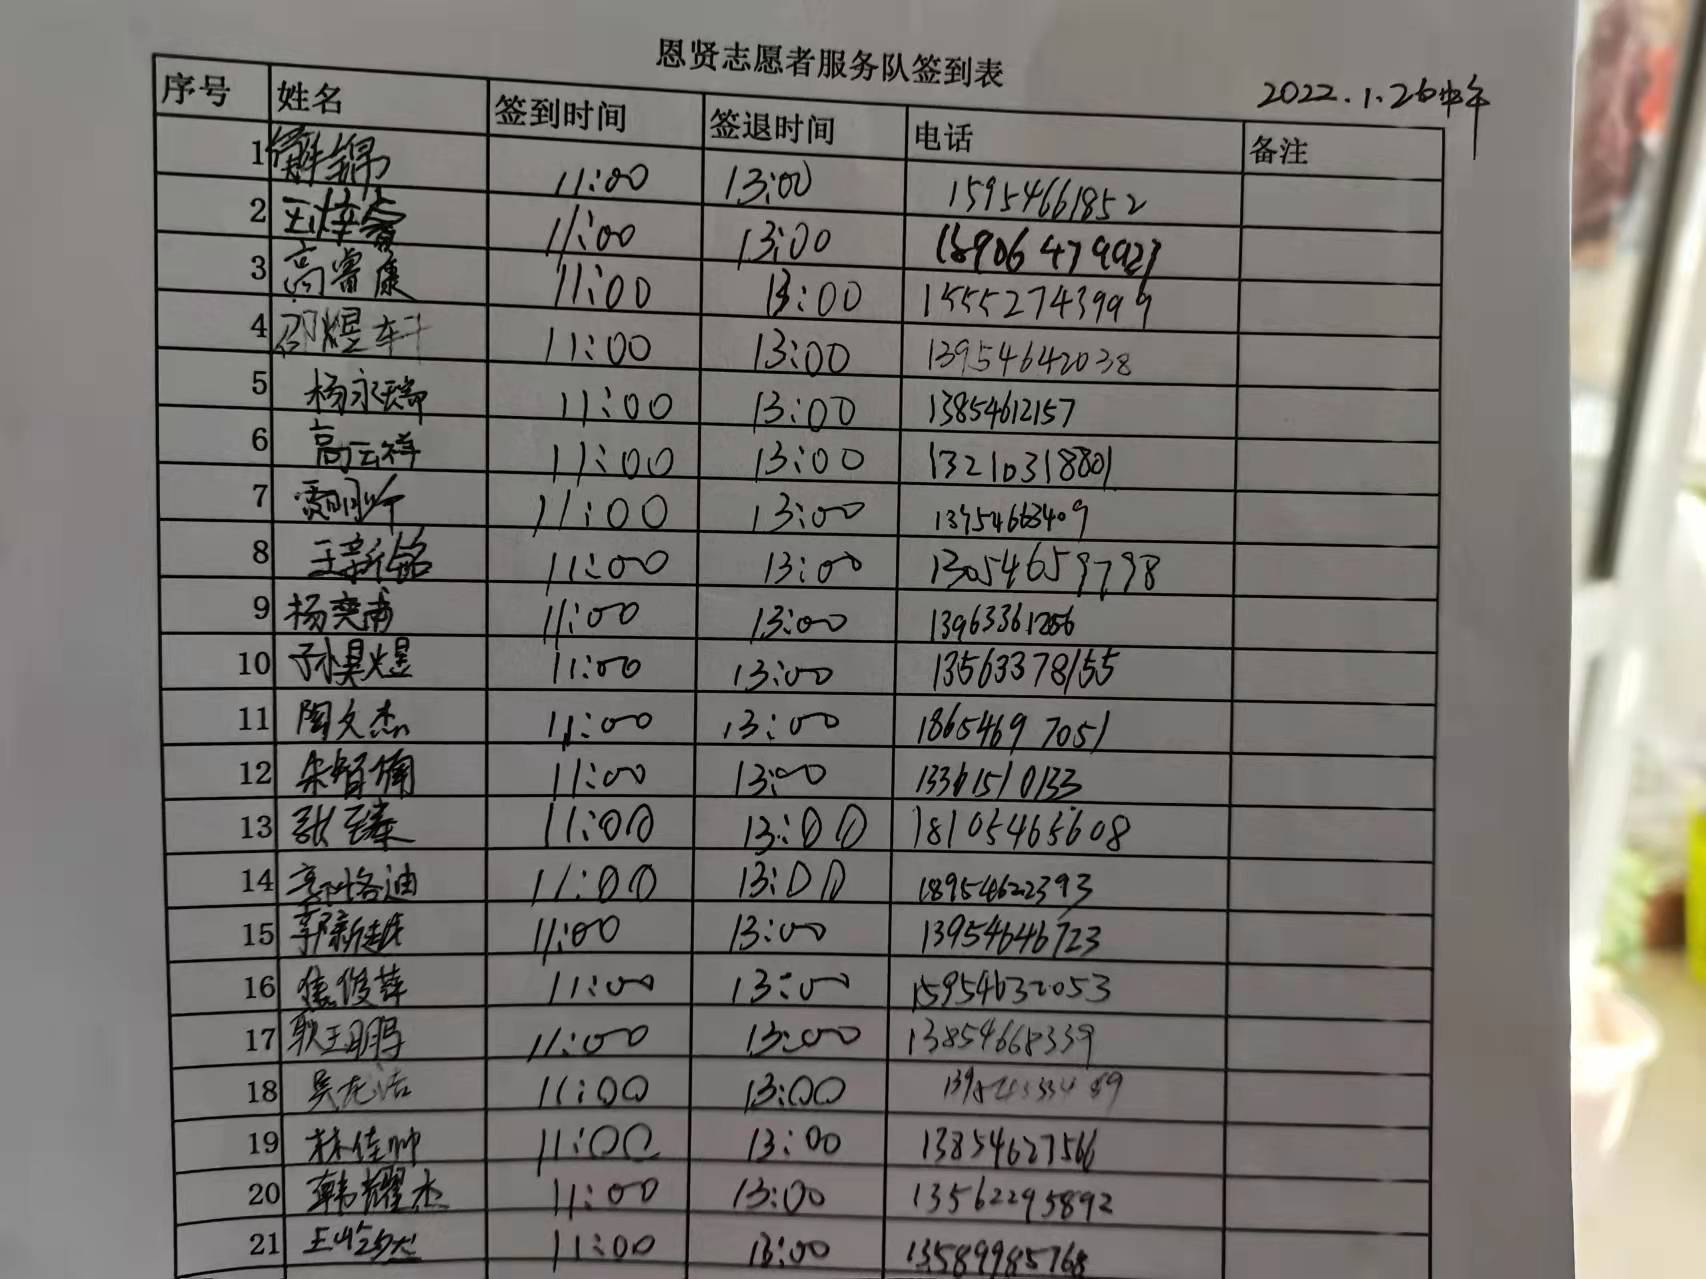 恩贤志愿者服务队签到表
2022.1.26中午
序号 姓名 签到时间 签退时间 电话 备注
1 11:00 13:00 15954661852
2 11:00 13:00
3 高睿康 11:00 13:00 15552743999
4 邵煜轩 11:00 13:00 13954642038
5 杨永瑞 11:00 13:00 13854612157
6 高云祥 11:00 13:00 13210318801
7 11:00 13:00
8 王新铭 11:00 13:00 13054659798
9 杨奕甫 11:00 13:00
10 孙昊煜 11:00 13:00 13563378155
11 陶文杰 11:00 13:00 18654697051
12 朱智楠 11:00 13:00 13361510133
13 11:00 13:00 18105465608
14 11:00 13:00 18954622393
15 11:00 13:00 13954646723
16 11:00 13:00 15954632053
17 11:00 13:00 13854668339
18 11:00 13:00
19 林佳帅 11:00 13:00 13854627566
20 韩耀杰 11:00 13:00 13562295892
21 11:00 13:00 13589985768